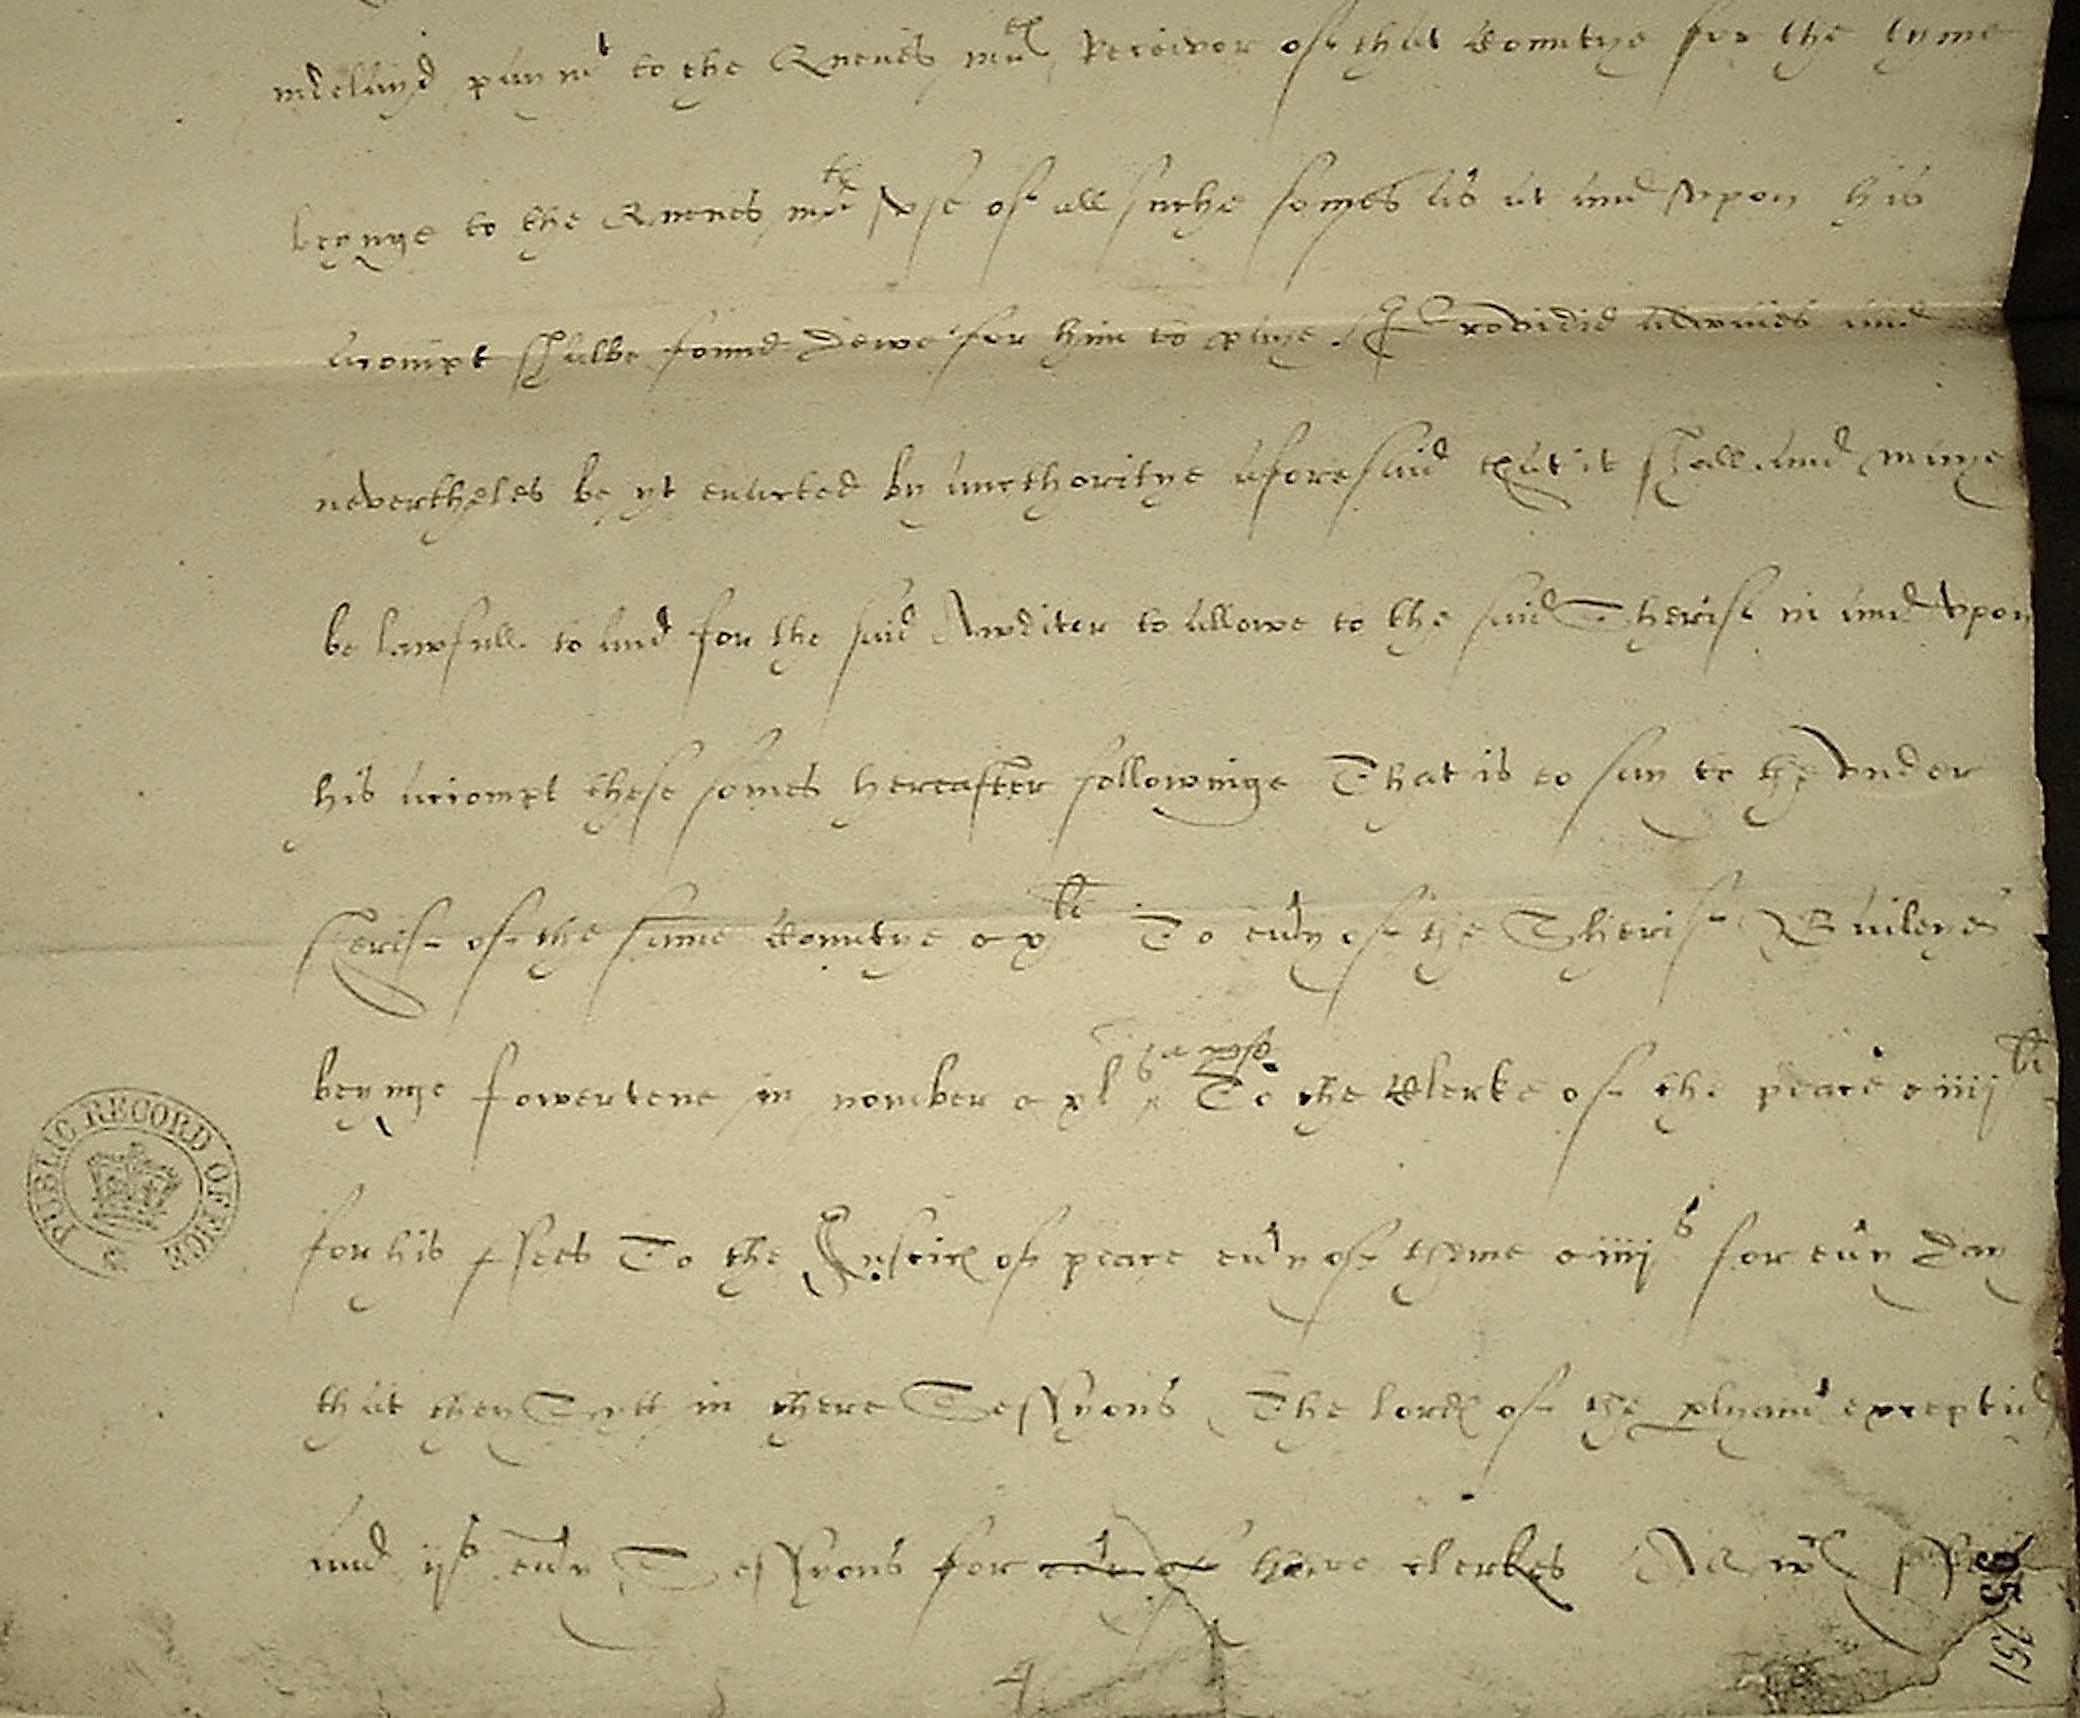 and paym^t to the Quenes ma^tes Receivor of that Countye for the tyme
beynge to the Quenes ma^tes vse of all suche somes as at and vpon his
accompt shalbe found dewe for him to paye. Providid alwaies and
nevertheles be yt enacted by aucthoritye aforesaid that it shall and maye
be lawfull to and for the said Awditor to allowe to the said Sherif in and vpon
his accompt these somes hereafter followinge That is to say to the vnder
sherif of the same Countye a x^li To eu'y of the Sherif Baileyes
beynge fowertene in nomber a xl^s To the Clerke of the peace a iiij^li
for his ffees To the Justic' of peace eu'y of theme a iiij^s for eu'y day
that they Sytt in there Sessyons The lord' of the plyam' exceptid
and ij^s eu'y Sessyons for there clerkes All w^ch
95
151
PUBLIC RECORD OFFICE